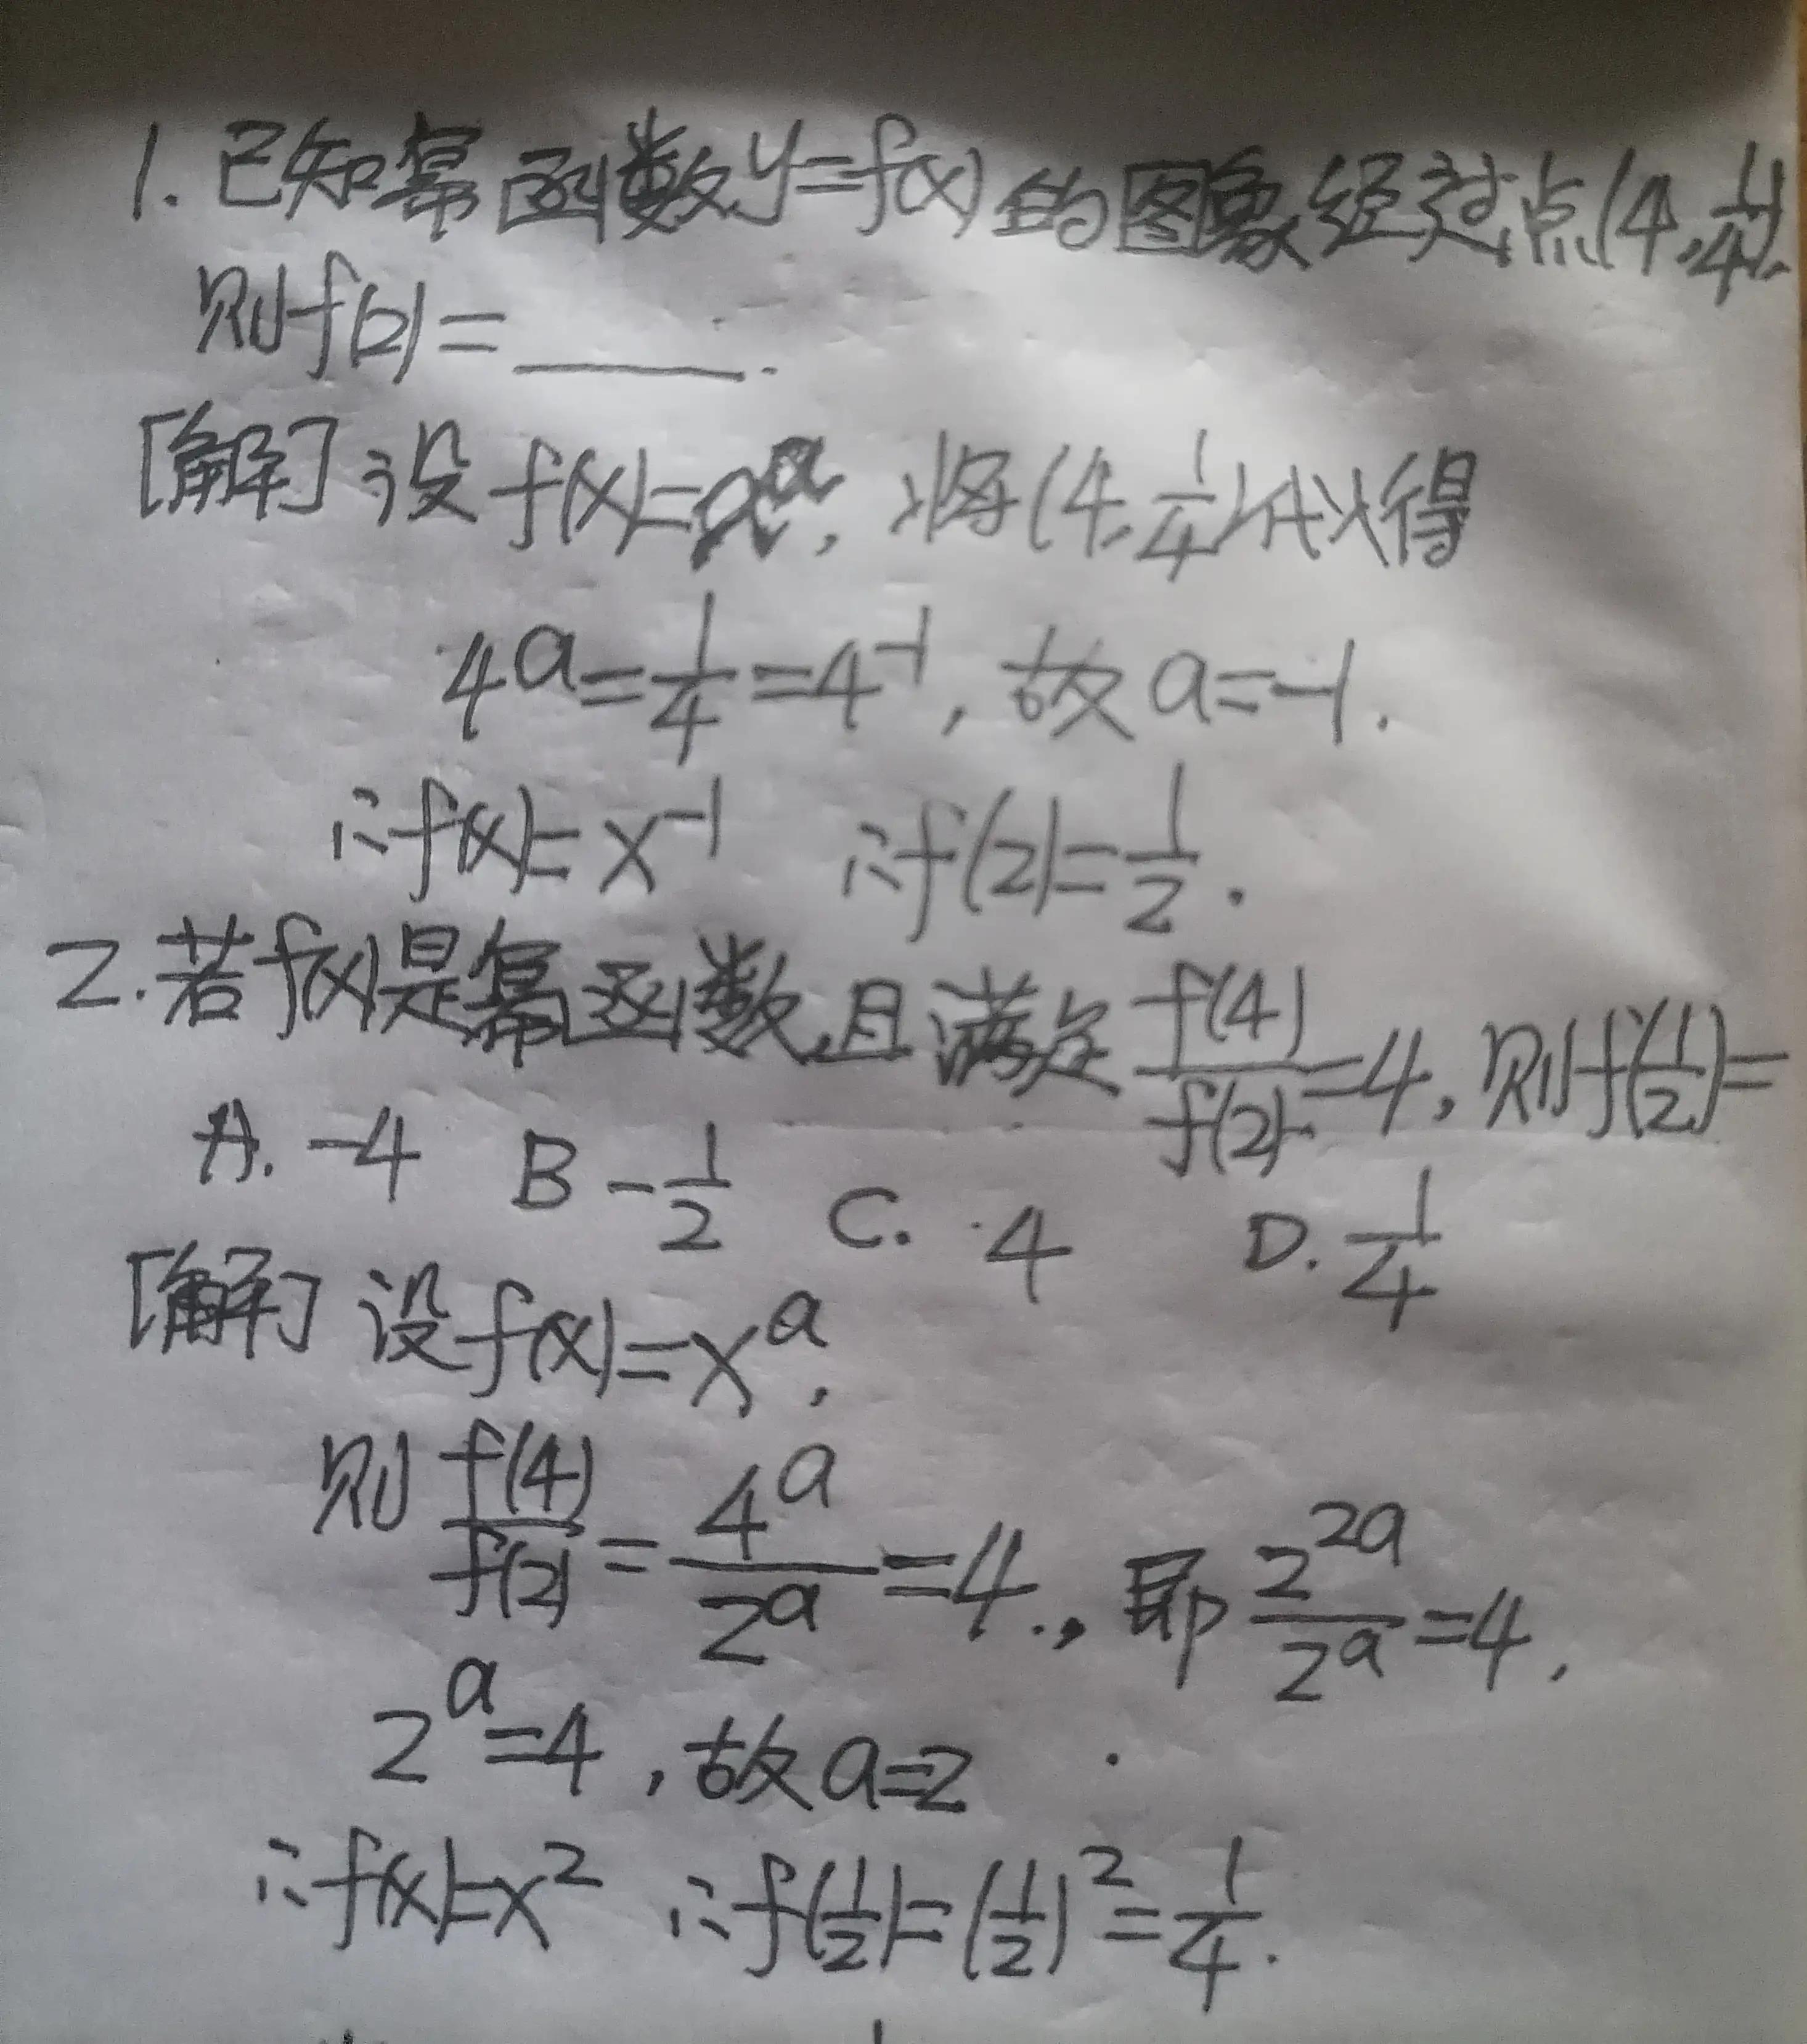 1. 已知幂函数y=f(x)的图象经过点(4,1/4),
则f(2)=____.
[解] 设f(x)=x^a, 将(4,1/4)代入得
4^a=1/4=4^-1, 故a=-1.
∴f(x)=x^-1 ∴f(2)=1/2.
2. 若f(x)是幂函数,且满足f(4)/f(2)=4, 则f(1/2)=
A. -4 B -1/2 C. 4 D. 1/4
[解] 设f(x)=x^a,
则f(4)/f(2)=4^a/2^a=4, 即2^2a/2^a=4,
2^a=4, 故a=2
∴f(x)=x^2 ∴f(1/2)=(1/2)^2=1/4.